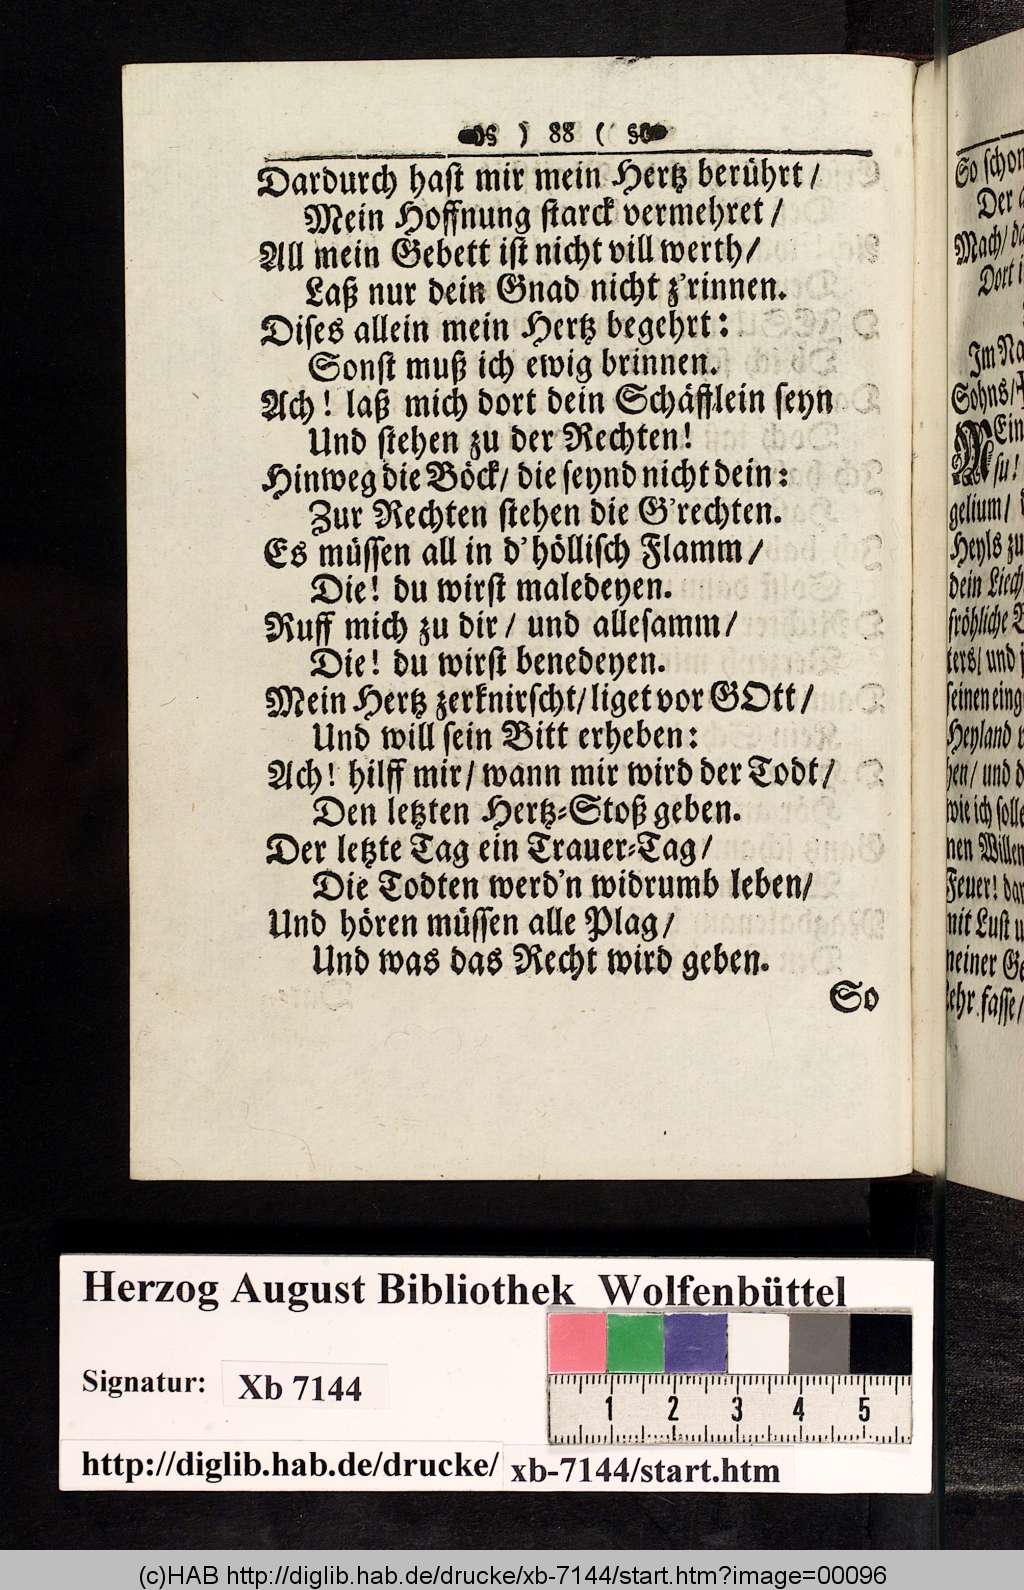 ) 88 (
Dardurch hast mir mein Hertz berührt /
Mein Hoffnung starck vermehret /
All mein Gebett ist nicht vill werth /
Laß nur dein Gnad nicht z'rinnen.
Dises allein mein Hertz begehrt :
Sonst muß ich ewig brinnen.
Ach ! laß mich dort dein Schäfflein seyn
Und stehen zu der Rechten !
Hinweg die Böck / die seynd nicht dein :
Zur Rechten stehen die G'rechten.
Es müssen all in d' höllisch Flamm /
Die ! du wirst maledeyen.
Ruff mich zu dir / und allesamm /
Die ! du wirst benedeyen.
Mein Hertz zerknirscht / liget vor GOtt /
Und will sein Bitt erheben :
Ach ! hilff mir / wann mir wird der Todt /
Den letzten Hertz-Stoß geben.
Der letzte Tag ein Trauer-Tag /
Die Todten werd'n widrumb leben /
Und hören müssen alle Plag /
Und was das Recht wird geben.
So
So schon
Der
Mach /
Dort
Im
Sohns /
Ein
su !
gelium /
Heyls zu
dein Liech
fröhliche
ters / und
seinen eing
Heyland
hen / und d
wie ich solle
nen Willen
Feuer ! dar
mit Lust u
meiner Ge
Lehr fasse /
Herzog August Bibliothek Wolfenbüttel
Signatur: Xb 7144
1 2 3 4 5
http://diglib.hab.de/drucke/ xb-7144/start.htm
(c)HAB http://diglib.hab.de/drucke/xb-7144/start.htm?image=00096